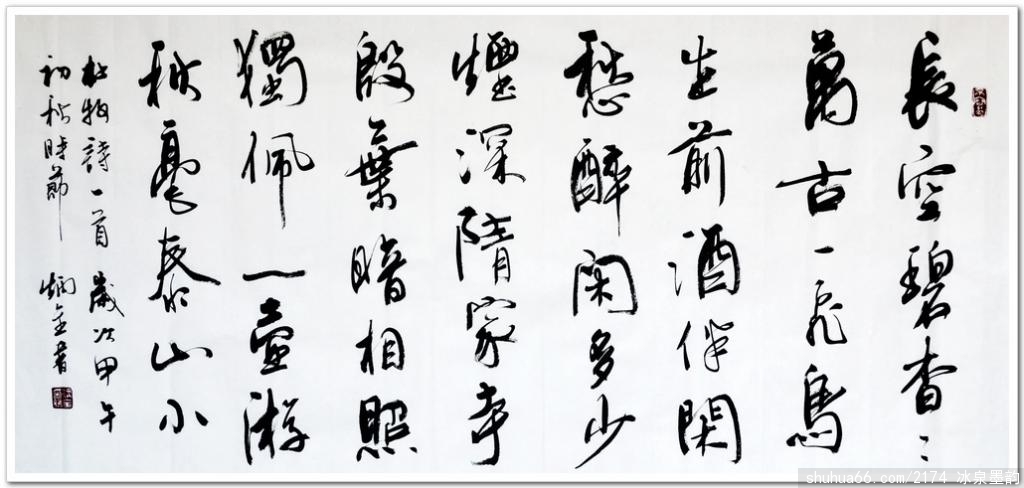 長空碧杳〻
萬古一飛鳥
生前酒伴閑
愁醉闲多少
煙深隋家寺
殷葉暗相照
獨佩一壺游
秋毫泰山小
杜牧詩一首 歲次甲午
初秋時節 炳金書
shuhua66.com/2174 冰泉墨韵